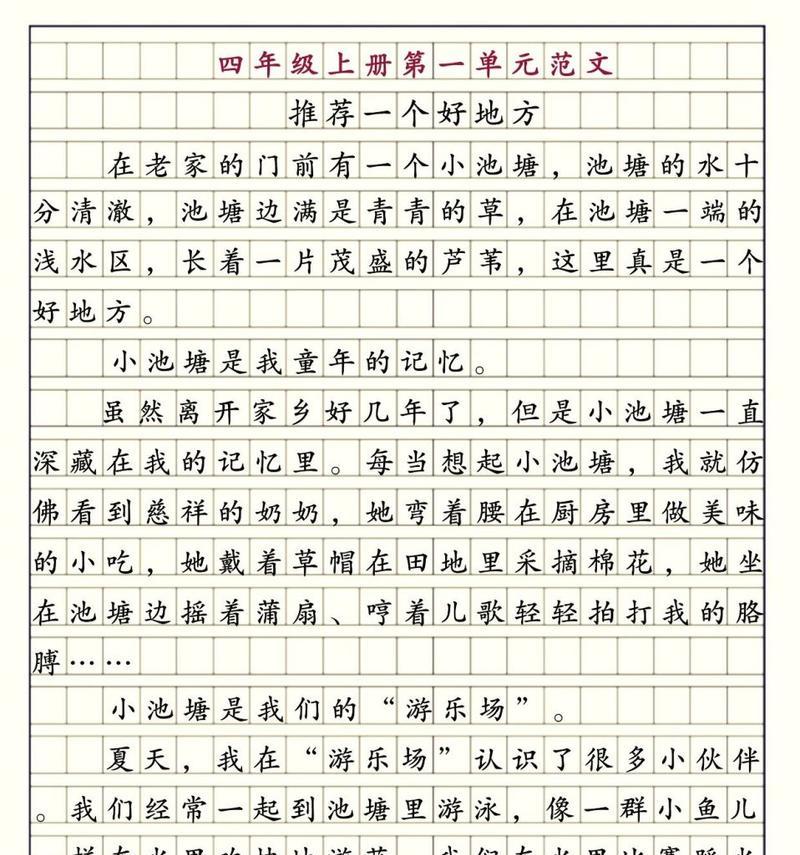 四年级上册第一单元范文
推荐一个好地方
在老家的门前有一个小池塘，池塘的水十
分清澈，池塘边满是青青的草，在池塘一端的
浅水区，长着一片茂盛的芦苇，这里真是一个
好地方。
小池塘是我童年的记忆。
虽然离开家乡好几年了，但是小池塘一直
深藏在我的记忆里。每当想起小池塘，我就仿
佛看到慈祥的奶奶，她弯着腰在厨房里做美味
的小吃，她戴着草帽在田地里采摘棉花，她坐
在池塘边摇着蒲扇、哼着儿歌轻轻拍打我的胳
膊……
小池塘是我们的“游乐场”。
夏天，我在“游乐场”认识了很多小伙伴
。我们经常一起到池塘里游泳，像一群小鱼儿